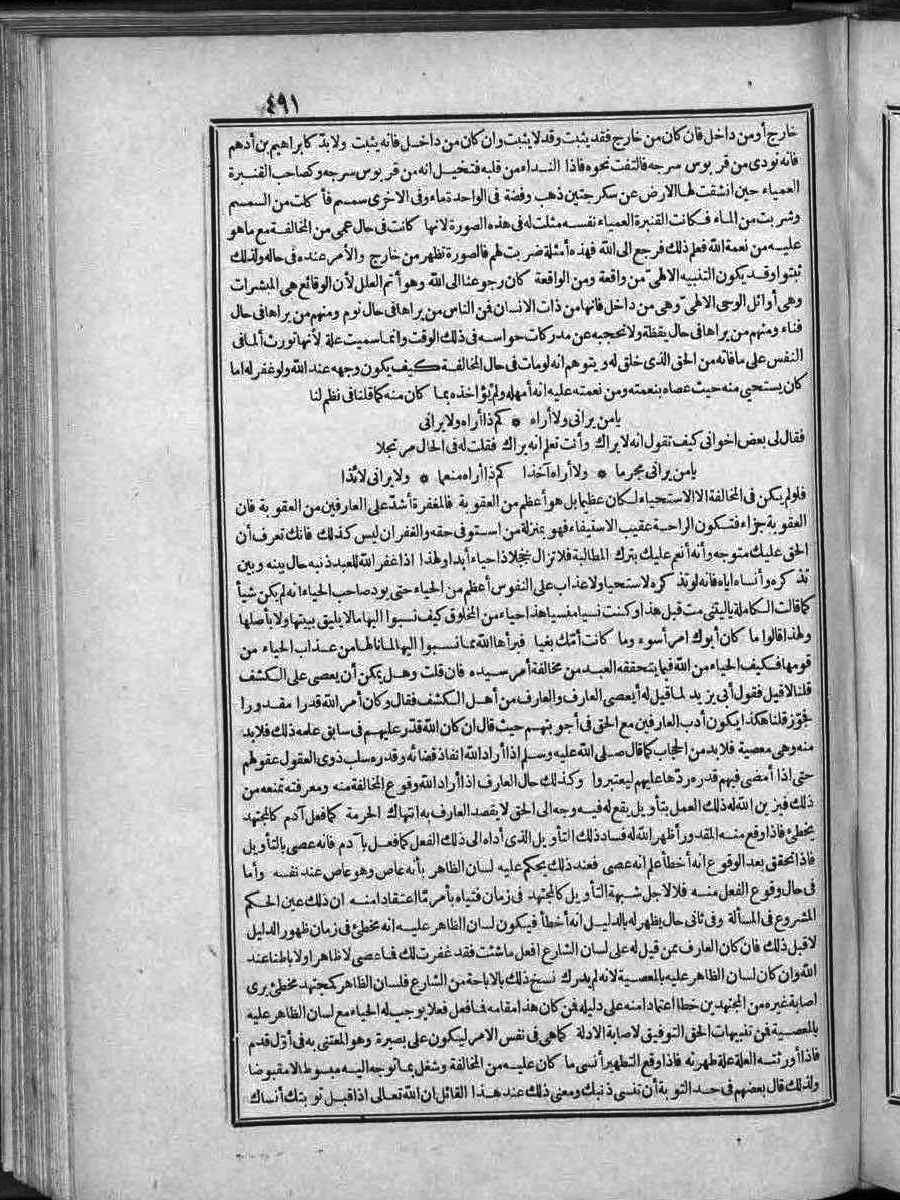 ٤٩١
خارج أو من داخل فان كان من خارج فقد يثبت وقد لا يثبت وان كان من داخل فانه يثبت ولا بد كابراهيم بن أدهم
فانه نودى من قربوس سرجه فالتفت نحوه فاذا النداء من قلبه فتخيل انه من قربوس سرجه وكصاحب القنبرة
العمياء حين انشقت لها الارض عن سكرجتين ذهب وفضة فى الواحدة ماء وفى الاخرى سمسم فأكلت من السمسم
وشربت من الماء فكانت القنبرة العمياء نفسه مثلت له فى هذه الصورة لانها كانت فى حال عمى من المخالفة مع ما هو
عليه من نعمة الله فعلم ذلك فرجع الى الله فهذه أمثلة ضربت لهم فالصورة تظهر من خارج والأمر عنده فى حاله ولذلك
ثبتوا وقد يكون التنبيه الالهىّ من واقعة ومن الواقعة كان رجوعنا الى الله وهو أتم العلل لأن الوقائع هى المبشرات
وهى أوائل الوحى الالهىّ وهى من داخل فانها من ذات الانسان فمن الناس من يراها فى حال نوم ومنهم من يراها فى حال
فناء ومنهم من يراها فى حال يقظة ولا تحجبه عن مدركات حواسه فى ذلك الوقت وانما سميت علة لأنها تورث ألما فى
النفس على ما فاته من الحق الذى خلق له ويتوهم انه لومات فى حال المخالفة كيف يكون وجهه عند الله ولو غفر له اما
كان يستحيى منه حيث عصاه بنعمته ومن نعمته عليه انه أمهله ولم يؤاخذه بما كان منه كما قلنا فى نظم لنا
يا من يرانى ولا أراه * كم ذا أراه ولا يرانى
فقال لى بعض اخوانى كيف تقول انه لا يراك وأنت تعلم انه يراك فقلت له فى الحال مرتجلا
يا من يرانى مجرما * ولا أراه آخذا كم ذا أراه منعما * ولا يرانى لائذا
فلو لم يكن فى المخالفة الا الاستحياء لكان عظيما بل هو أعظم من العقوبة فالمغفرة أشدّ على العارفين من العقوبة فان
العقوبة جزاء فتكون الراحة عقيب الاستيفاء فهو بمنزلة من استوفى حقه والغفران ليس كذلك فانك تعرف أن
الحق عليك متوجه وأنه أنعم عليك بترك المطالبة فلا تزال خجلا ذا حياء أبدا ولهذا اذا غفر الله للعبد ذنبه حال بينه وبين
تذكره وأنساه اياه فانه لو تذكره لاستحيا ولا عذاب على النفوس أعظم من الحياء حتى يود صاحب الحياء انه لم يكن شيأ
كما قالت الكاملة ياليتنى مت قبل هذا وكنت نسيا منسيا هذا حياء من المخلوق كيف نسبوا اليها مالا يليق ببيتها ولا بأصلها
ولهذا قالوا ما كان أبوك امرأ سوء وما كانت أمّك بغيا فبرأها الله مما نسبوا اليها لما نالها من عذاب الحياء من
قومها فكيف الحياء من الله فيما يتحققه العبد من مخالفة أمر سيده فان قلت وهل يمكن أن يعصى على الكشف
قلنا لا قيل فقول أبى يزيد لما قيل له أيعصى العارف والعارف من أهل الكشف فقال وكان أمر الله قدرا مقدورا
فجوّز قلنا هكذا يكون أدب العارفين مع الحق فى أجوبتهم حيث قال ان كان الله قدّر عليهم فى سابق علمه ذلك فلا بد
منه وهى معصية فلا بد من الحجاب كما قال صلى الله عليه وسلم اذا أراد الله انفاذ قضائه وقدره سلب ذوى العقول عقولهم
حتى اذا أمضى فيهم قدره ردّها عليهم ليعتبروا وكذلك حال العارف اذا أراد الله وقوع المخالفة منه ومعرفته تمنعه من
ذلك فيزين الله له ذلك العمل بتأويل يقع له فيه وجه الى الحق لا يقصد العارف به انتهاك الحرمة كما فعل آدم كالمجتهد
يخطئ فاذا وقع منه المقدور أظهر الله له فساد ذلك التأويل الذى أداه الى ذلك الفعل كما فعل بآدم فانه عصى بالتأويل
فاذا تحقق بعد الوقوع انه أخطأ علم انه عصى فعند ذلك يحكم عليه لسان الظاهر بأنه عاص وهو عاص عند نفسه وأما
فى حال وقوع الفعل منه فلا لاجل شبهة التأويل كالمجتهد فى زمان فتياه بأمر مّا اعتقادا منه ان ذلك عين الحكم
المشروع فى المسألة وفى ثانى حال يظهر له بالدليل انه أخطأ فيكون لسان الظاهر عليه انه مخطئ فى زمان ظهور الدليل
لا قبل ذلك فان كان العارف ممن قيل له على لسان الشارع افعل ما شئت فقد غفرت لك فما عصى لا ظاهرا ولا باطنا عند
الله وان كان لسان الظاهر عليه بالمعصية لانه لم يدرك نسخ ذلك بالاباحة من الشارع فلسان الظاهر كمجتهد مخطئ يرى
اصابة غيره من المجتهدين خطا اعتمادا منه على دليله فمن كان هذا مقامه فما فعل فعلا يوجب له الحياء مع لسان الظاهر عليه
بالمعصية فمن تنبيهات الحق التوفيق لاصابة الادلة كما هى فى نفس الامر ليكون على بصيرة وهو المعتنى به فى أوّل قدم
فاذا أورثته العلة علة طهرته فاذا وقع التطهير أنسى ما كان عليه من المخالفة وشغل بما توجه اليه مبسوطا لا مقبوضا
ولذلك قال بعضهم فى حد التوبة أن تنسى ذنبك ومعنى ذلك عند هذا القائل ان الله تعالى اذا قبل توبتك أنساك